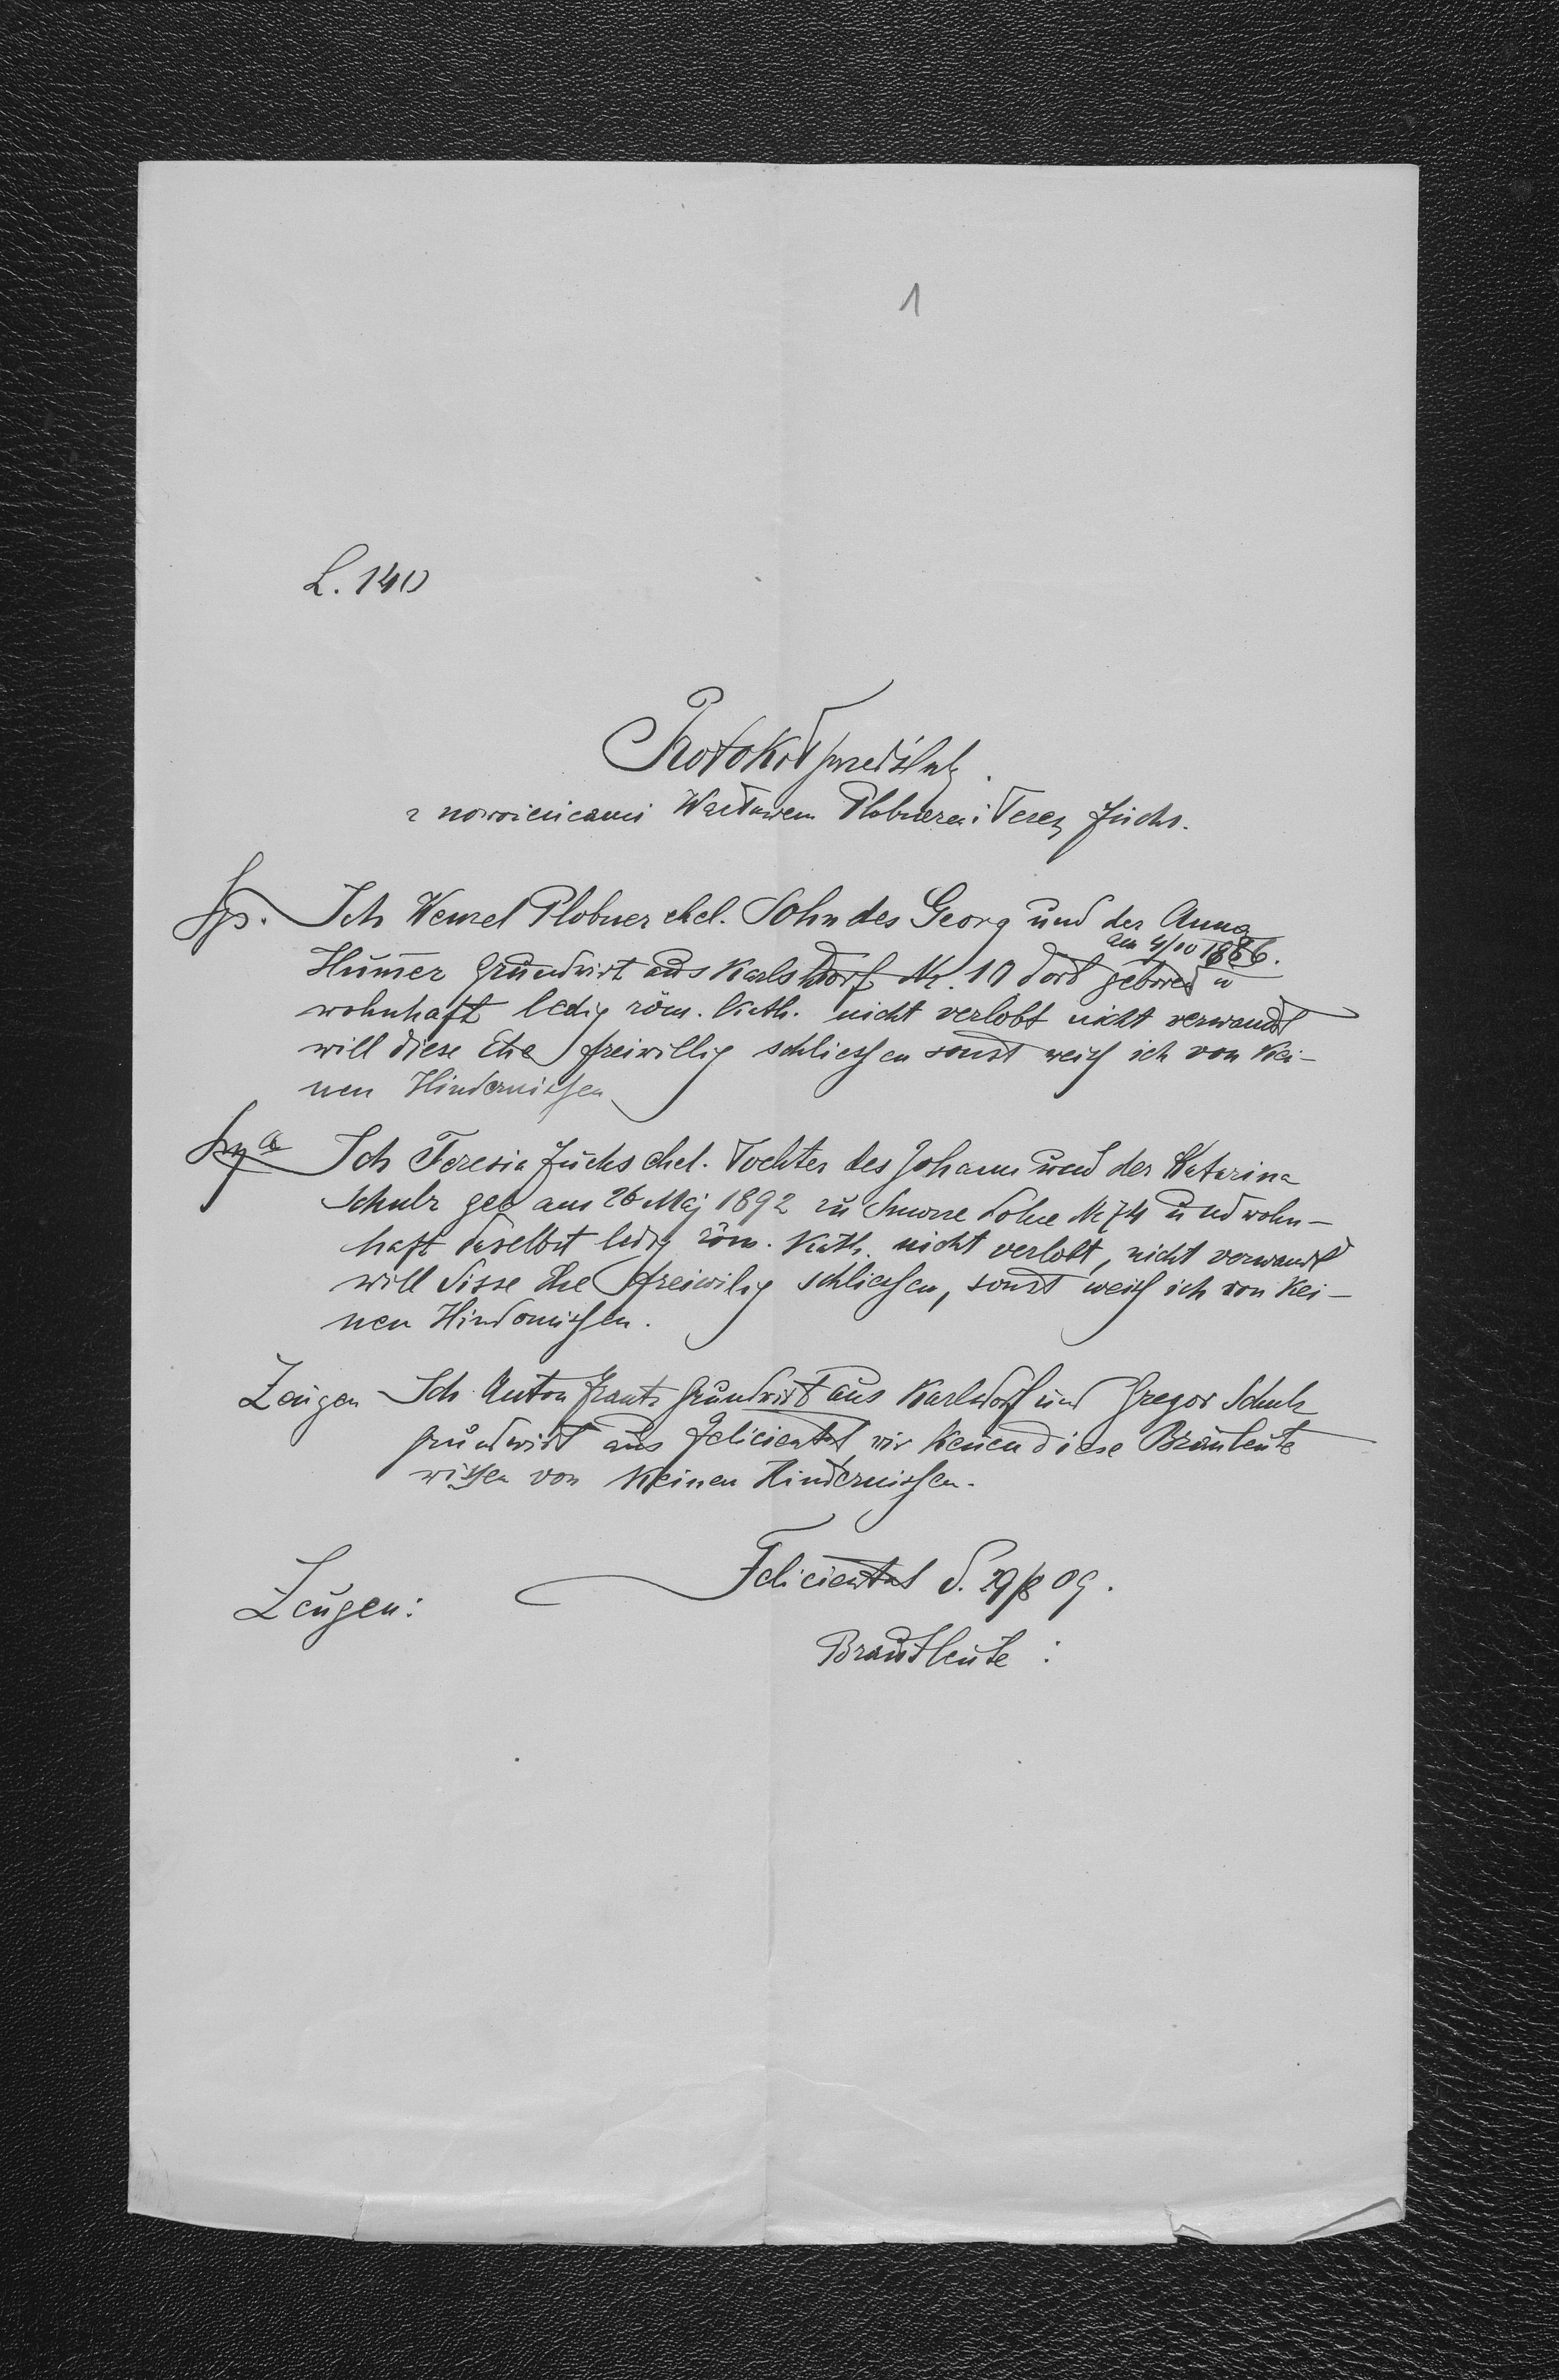 1
L. 140
Protokół przedślub.
z nowożeńcami Wacławem Plobnerem i Teresą Fuchs.
Sps. Ich Wenzel Plobner ehel. Sohn des Georg und der Anna
am 4/10 1886.
Hum̄er Grundwirt aus Karlsdorf Nr. 10 dort geboren u
wohnhaft ledig röm. kath. nicht verlobt nicht verwandt
will diese Ehe freiwillig schliessen sonst weiss ich von kei-
nen Hindernissen
Ich Teresia Fuchs ehel. Tochter des Johann und der Katarina
Schulz geb am 26 Maj 1892 zu Smorze dolne Nr 74 und wohn-
haft daselbst ledig röm. Kath. nicht verlobt, nicht verwandt
will disse Ehe freiwilig schliessen, sonst weiss ich von kei-
nen Hindernissen.
Zeugen Ich Anton Frantz Grundwirt aus Karlsdorf und Gregor Schulz
Grundwirt aus Felicienthal wir kenen diese Brauleute
wissen von keinen Hindernissen.
Felicienthal d. 09.
Zeugen:
Brautleute :